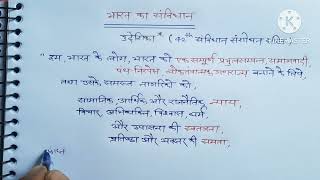 भारत का संविधान
उद्देशिका* ( 42th संविधान संशोधन सहित )
"हम, भारत के लोग, भारत को एक सम्पूर्ण प्रभुत्वसम्पन्न, समाजवादी,
पंथ-निरपेक्ष, लोकतंत्रात्मक, गणराज्य बनाने के लिये,
तथा उसके समस्त नागरिकों को,
सामाजिक, आर्थिक, और राजनैतिक, न्याय,
विचार, अभिव्यक्ति, विश्वास, धर्म,
और उपासना की स्वतंत्रता,
प्रतिष्ठा और अवसर की समता,